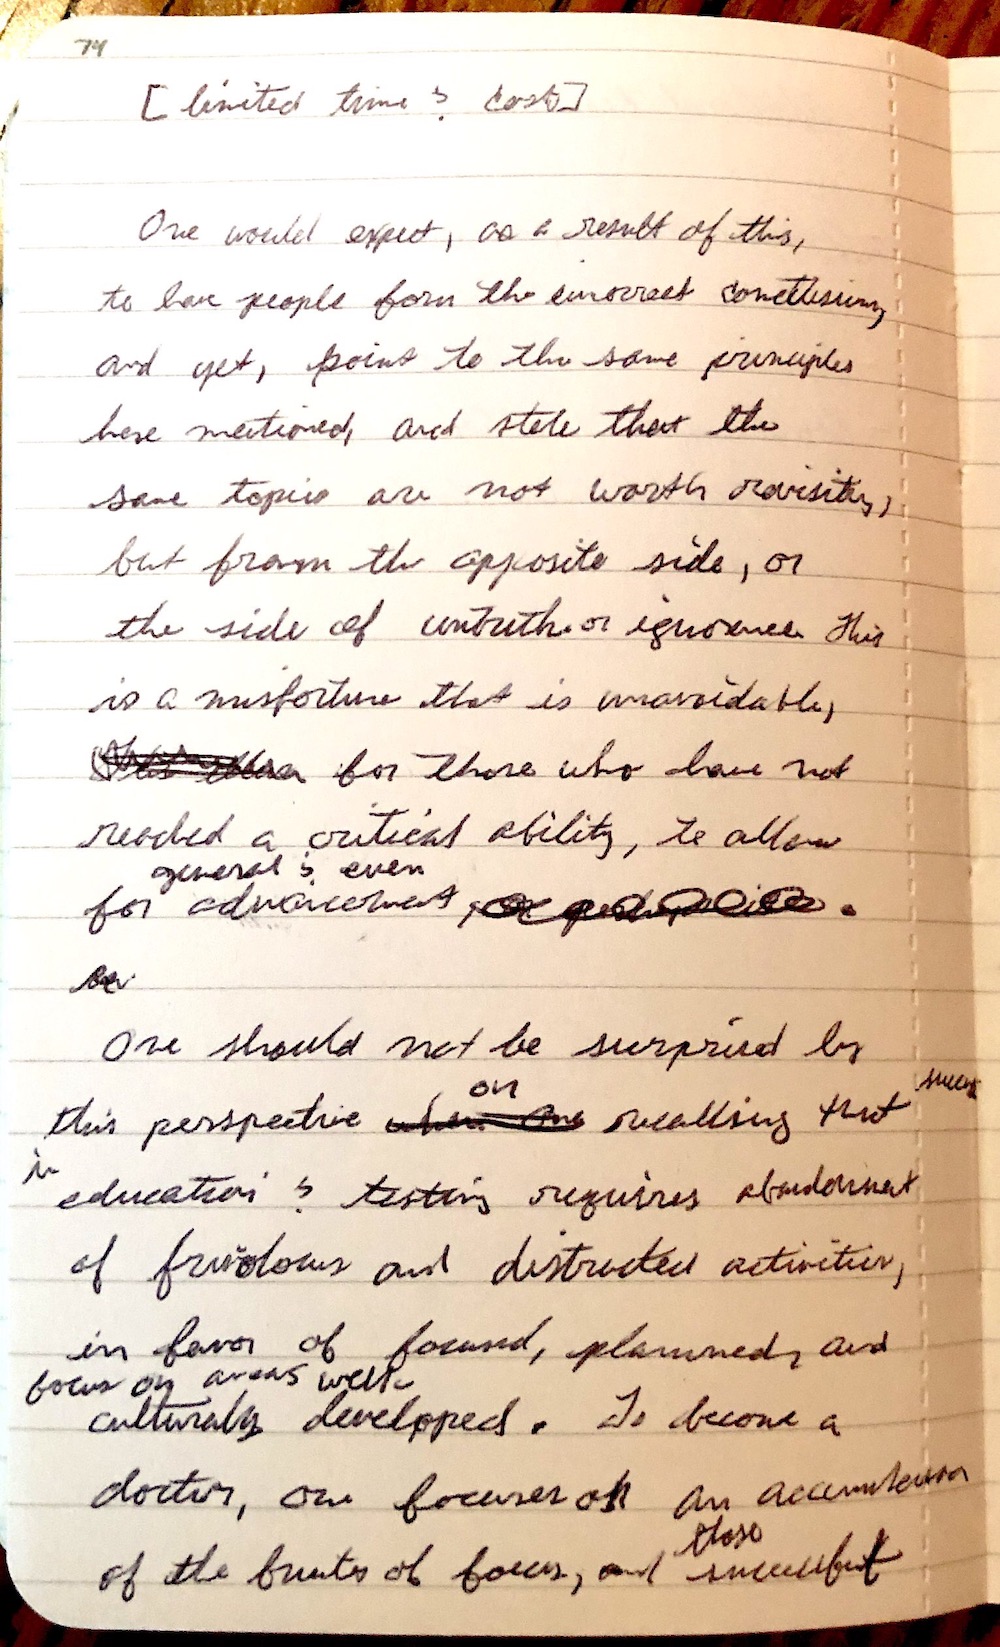 74
[limited time & cost]
One would expect, as a result of this,
to have people form the incorrect conclusion,
and yet, point to the same principles
here mentioned, and state that the
same topics are not worth revisiting,
but from the opposite side, or
the side of untruth or ignorance. This
is a misfortune that is unavoidable,
for those who have not
reached a critical ability, to allow
general & even
for advancement.
One should not be surprised by
this perspective on recalling that success
in
education & testing requires abandonment
of frivolous and distracted activities,
in favor of focused, planned, and
focus on areas well
culturally developed. To become a
doctor, one focuses on an accumulation
of the fruits of focus, and those successful